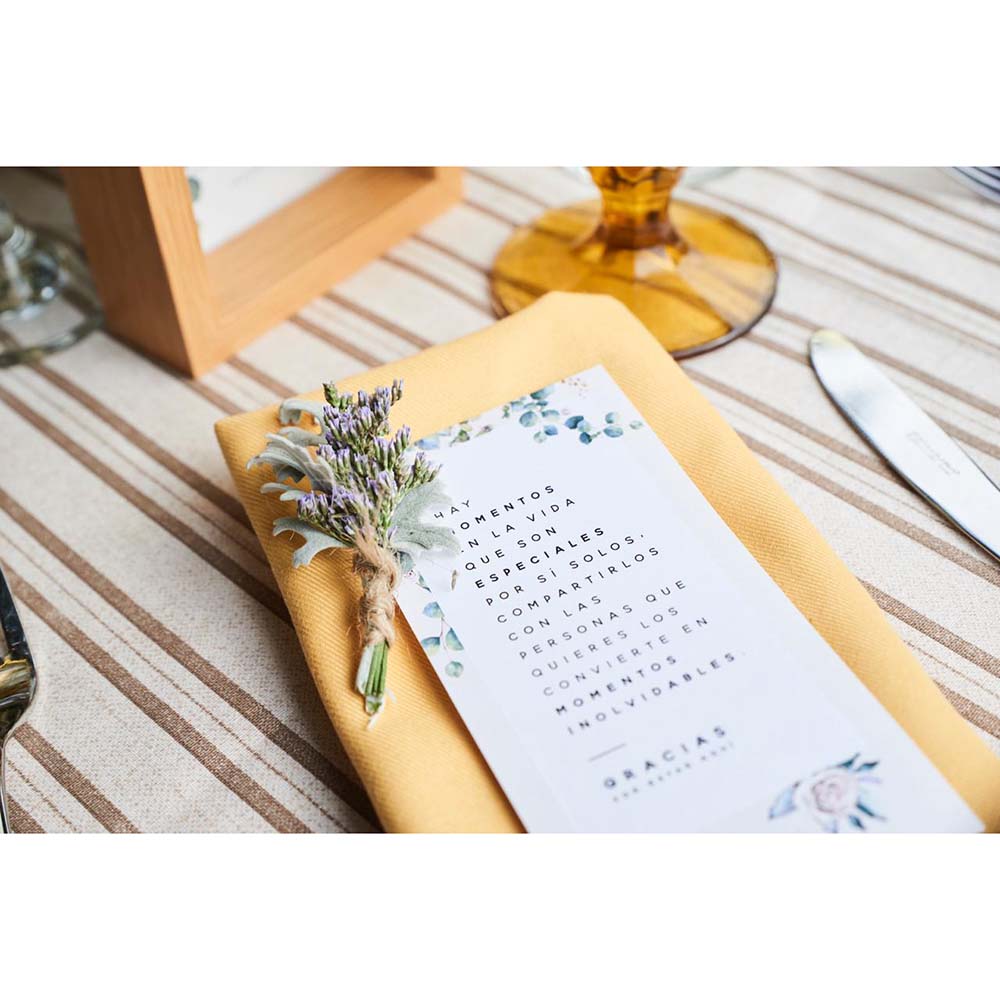 HAY
MOMENTOS
EN LA VIDA
QUE SON
ESPECIALES
POR SÍ SOLOS,
COMPARTIRLOS
CON LAS
PERSONAS QUE
QUIERES LOS
CONVIERTE EN
MOMENTOS
INOLVIDABLES.
GRACIAS
POR ESTAR AQUÍ